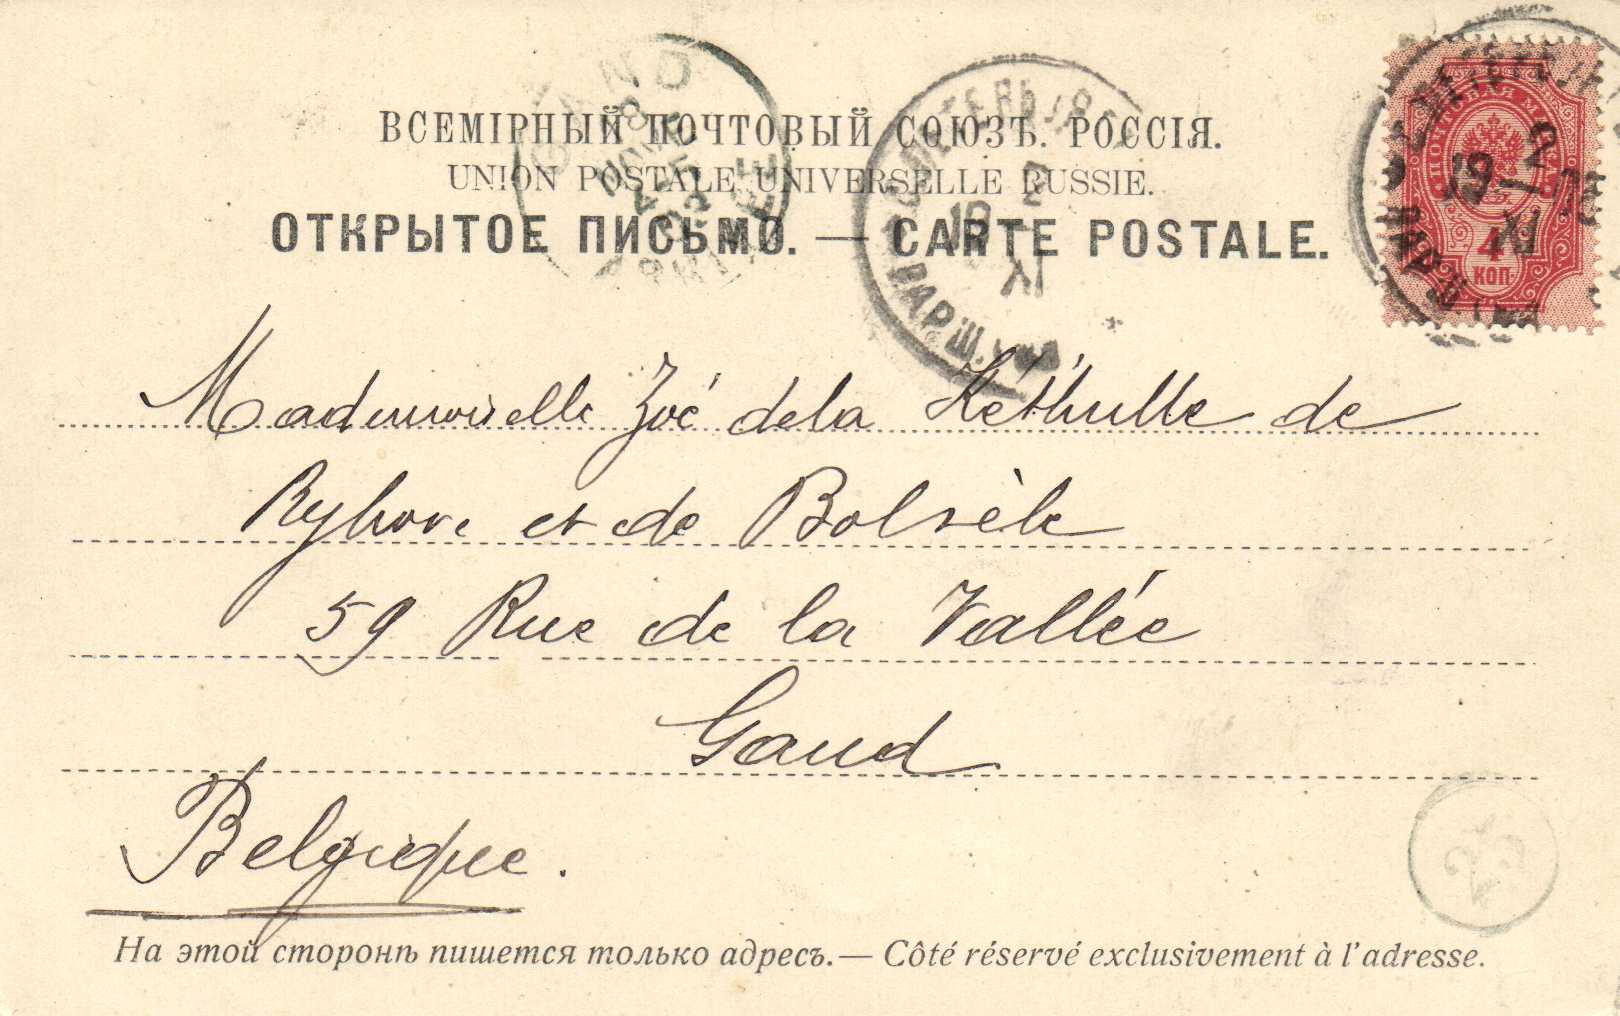 ВСЕМІРНЫЙ ПОЧТОВЫЙ СОЮЗЪ. РОССІЯ.
UNION POSTALE UNIVERSELLE RUSSIE.
ОТКРЫТОЕ ПИСЬМО. — CARTE POSTALE.
GAND
ПОЧТОВАЯ МАРКА
4
КОП.
2
XI
Mademoiselle Zoé de la Kéthulle de
Ryhove et de Bolsèle
59 Rue de la Vallée
Gand
Belgique.
25
На этой сторонѣ пишется только адресъ.— Côté réservé exclusivement à l'adresse.